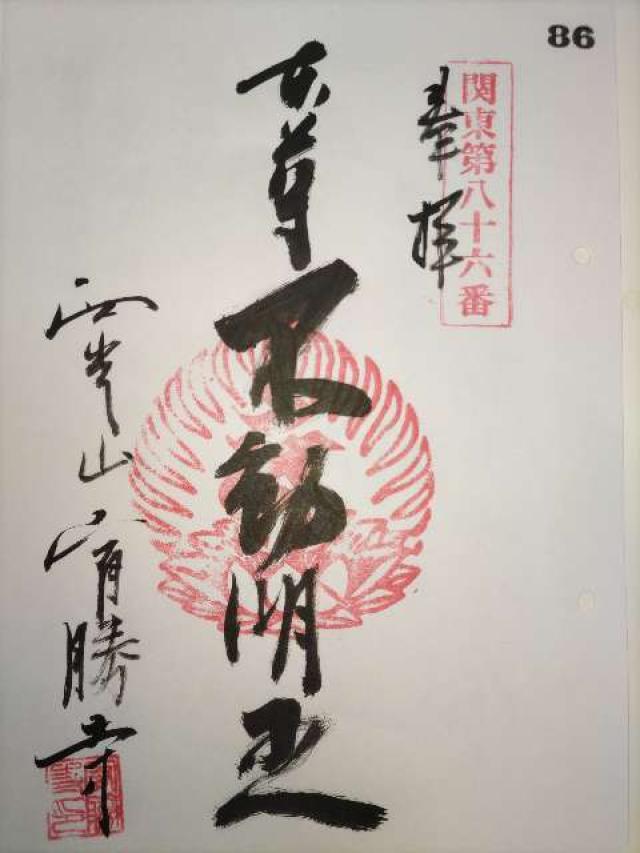 86
関東第八十六番
奉拝
本尊 不動明王
西光山 宥勝寺